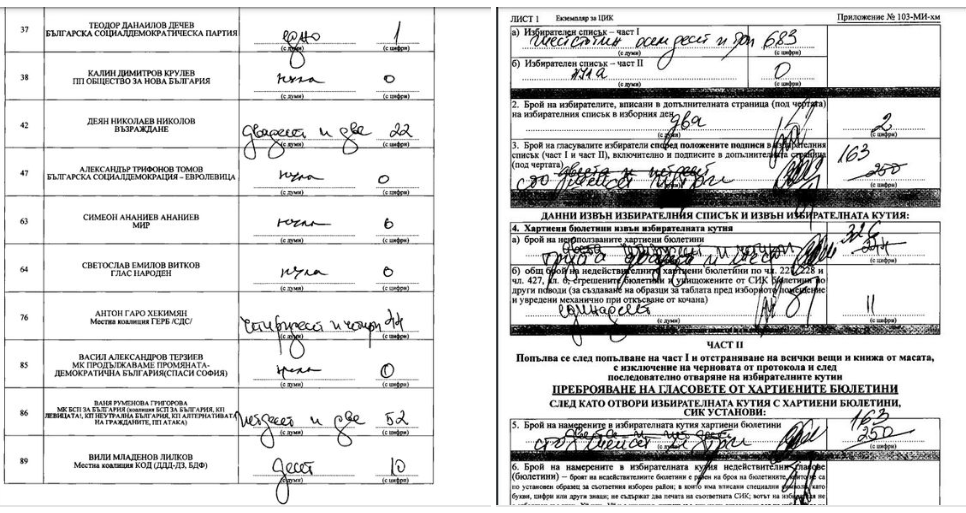 37
ТЕОДОР ДАНАИЛОВ ДЕЧЕВ
БЪЛГАРСКА СОЦИАЛДЕМОКРАТИЧЕСКА ПАРТИЯ
едно 1
(с думи) (с цифри)
38
КАЛИН ДИМИТРОВ КРУЛЕВ
ПП ОБЩЕСТВО ЗА НОВА БЪЛГАРИЯ
нула 0
(с думи) (с цифри)
42
ДЕЯН НИКОЛАЕВ НИКОЛОВ
ВЪЗРАЖДАНЕ
двадесет и две 22
(с думи) (с цифри)
47
АЛЕКСАНДЪР ТРИФОНОВ ТОМОВ
БЪЛГАРСКА СОЦИАЛДЕМОКРАЦИЯ – ЕВРОЛЕВИЦА
нула 0
(с думи) (с цифри)
63
СИМЕОН АНАНИЕВ АНАНИЕВ
МИР
нула 0
(с думи) (с цифри)
64
СВЕТОСЛАВ ЕМИЛОВ ВИТКОВ
ГЛАС НАРОДЕН
нула 0
(с думи) (с цифри)
76
АНТОН ГАРО ХЕКИМЯН
Местна коалиция ГЕРБ /СДС/
четиридесет и четири 44
(с думи) (с цифри)
85
ВАСИЛ АЛЕКСАНДРОВ ТЕРЗИЕВ
МК ПРОДЪЛЖАВАМЕ ПРОМЯНАТА-
ДЕМОКРАТИЧНА БЪЛГАРИЯ(СПАСИ СОФИЯ)
нула 0
(с думи) (с цифри)
86
ВАНЯ РУМЕНОВА ГРИГОРОВА
МК БСП ЗА БЪЛГАРИЯ (коалиция БСП ЗА БЪЛГАРИЯ, КП
ЛЕВИЦАТА!, КП НЕУТРАЛНА БЪЛГАРИЯ, КП АЛТЕРНАТИВАТА
НА ГРАЖДАНИТЕ, ПП АТАКА)
петдесет и две 52
(с думи) (с цифри)
89
ВИЛИ МЛАДЕНОВ ЛИЛКОВ
Местна коалиция КОД (ДДД-ДЗ, БДФ)
десет 10
(с думи) (с цифри)
ЛИСТ 1 Екземпляр за ЦИК Приложение № 103-МИ-хм
а) Избирателен списък – част I
шестстотин осемдесет и три 683
(с думи) (с цифри)
б) Избирателен списък – част II
нула 0
(с думи) (с цифри)
2. Брой на избирателите, вписани в допълнителната страница (под чертата)
на избирателния списък в изборния ден
два 2
(с думи) (с цифри)
3. Брой на гласувалите избиратели според положените подписи в избирателния
списък (част I и част II), включително и подписите в допълнителната страница
(под чертата)
163
двеста и петдесет 250
сто шейсет и три
ДАННИ ИЗВЪН ИЗБИРАТЕЛНИЯ СПИСЪК И ИЗВЪН ИЗБИРАТЕЛНАТА КУТИЯ:
4. Хартиени бюлетини извън избирателната кутия
а) брой на неизползваните хартиени бюлетини
326
триста двадесет и шест
(с думи) (с цифри)
б) общ брой на недействителните хартиени бюлетини по чл. 227, 228 и
чл. 427, ал. 6, сгрешените бюлетини и унищожените от СИК бюлетини по
други поводи (за създаване на образци за таблата пред изборното помещение
и увредени механично при откъсване от кочана)
единадесет 11
(с думи) (с цифри)
ЧАСТ II
Попълва се след попълване на част I и отстраняване на всички вещи и книжа от масата,
с изключение на черновата от протокола и след
последователно отваряне на избирателните кутии
ПРЕБРОЯВАНЕ НА ГЛАСОВЕТЕ ОТ ХАРТИЕНИТЕ БЮЛЕТИНИ
СЛЕД КАТО ОТВОРИ ИЗБИРАТЕЛНАТА КУТИЯ С ХАРТИЕНИ БЮЛЕТИНИ,
СИК УСТАНОВИ:
5. Брой на намерените в избирателната кутия хартиени бюлетини
163
двеста и петдесет 250
сто шейсет и три
6. Брой на намерените в избирателната кутия недействителни гласове
(бюлетини) – броят на недействителните бюлетини е равен на броя на бюлетините, които не са
по установен образец за съответния изборен район; в които има вписани специални символи, като
букви, цифри или други знаци; не съдържат два печата на съответната СИК; вотът на избирателя не